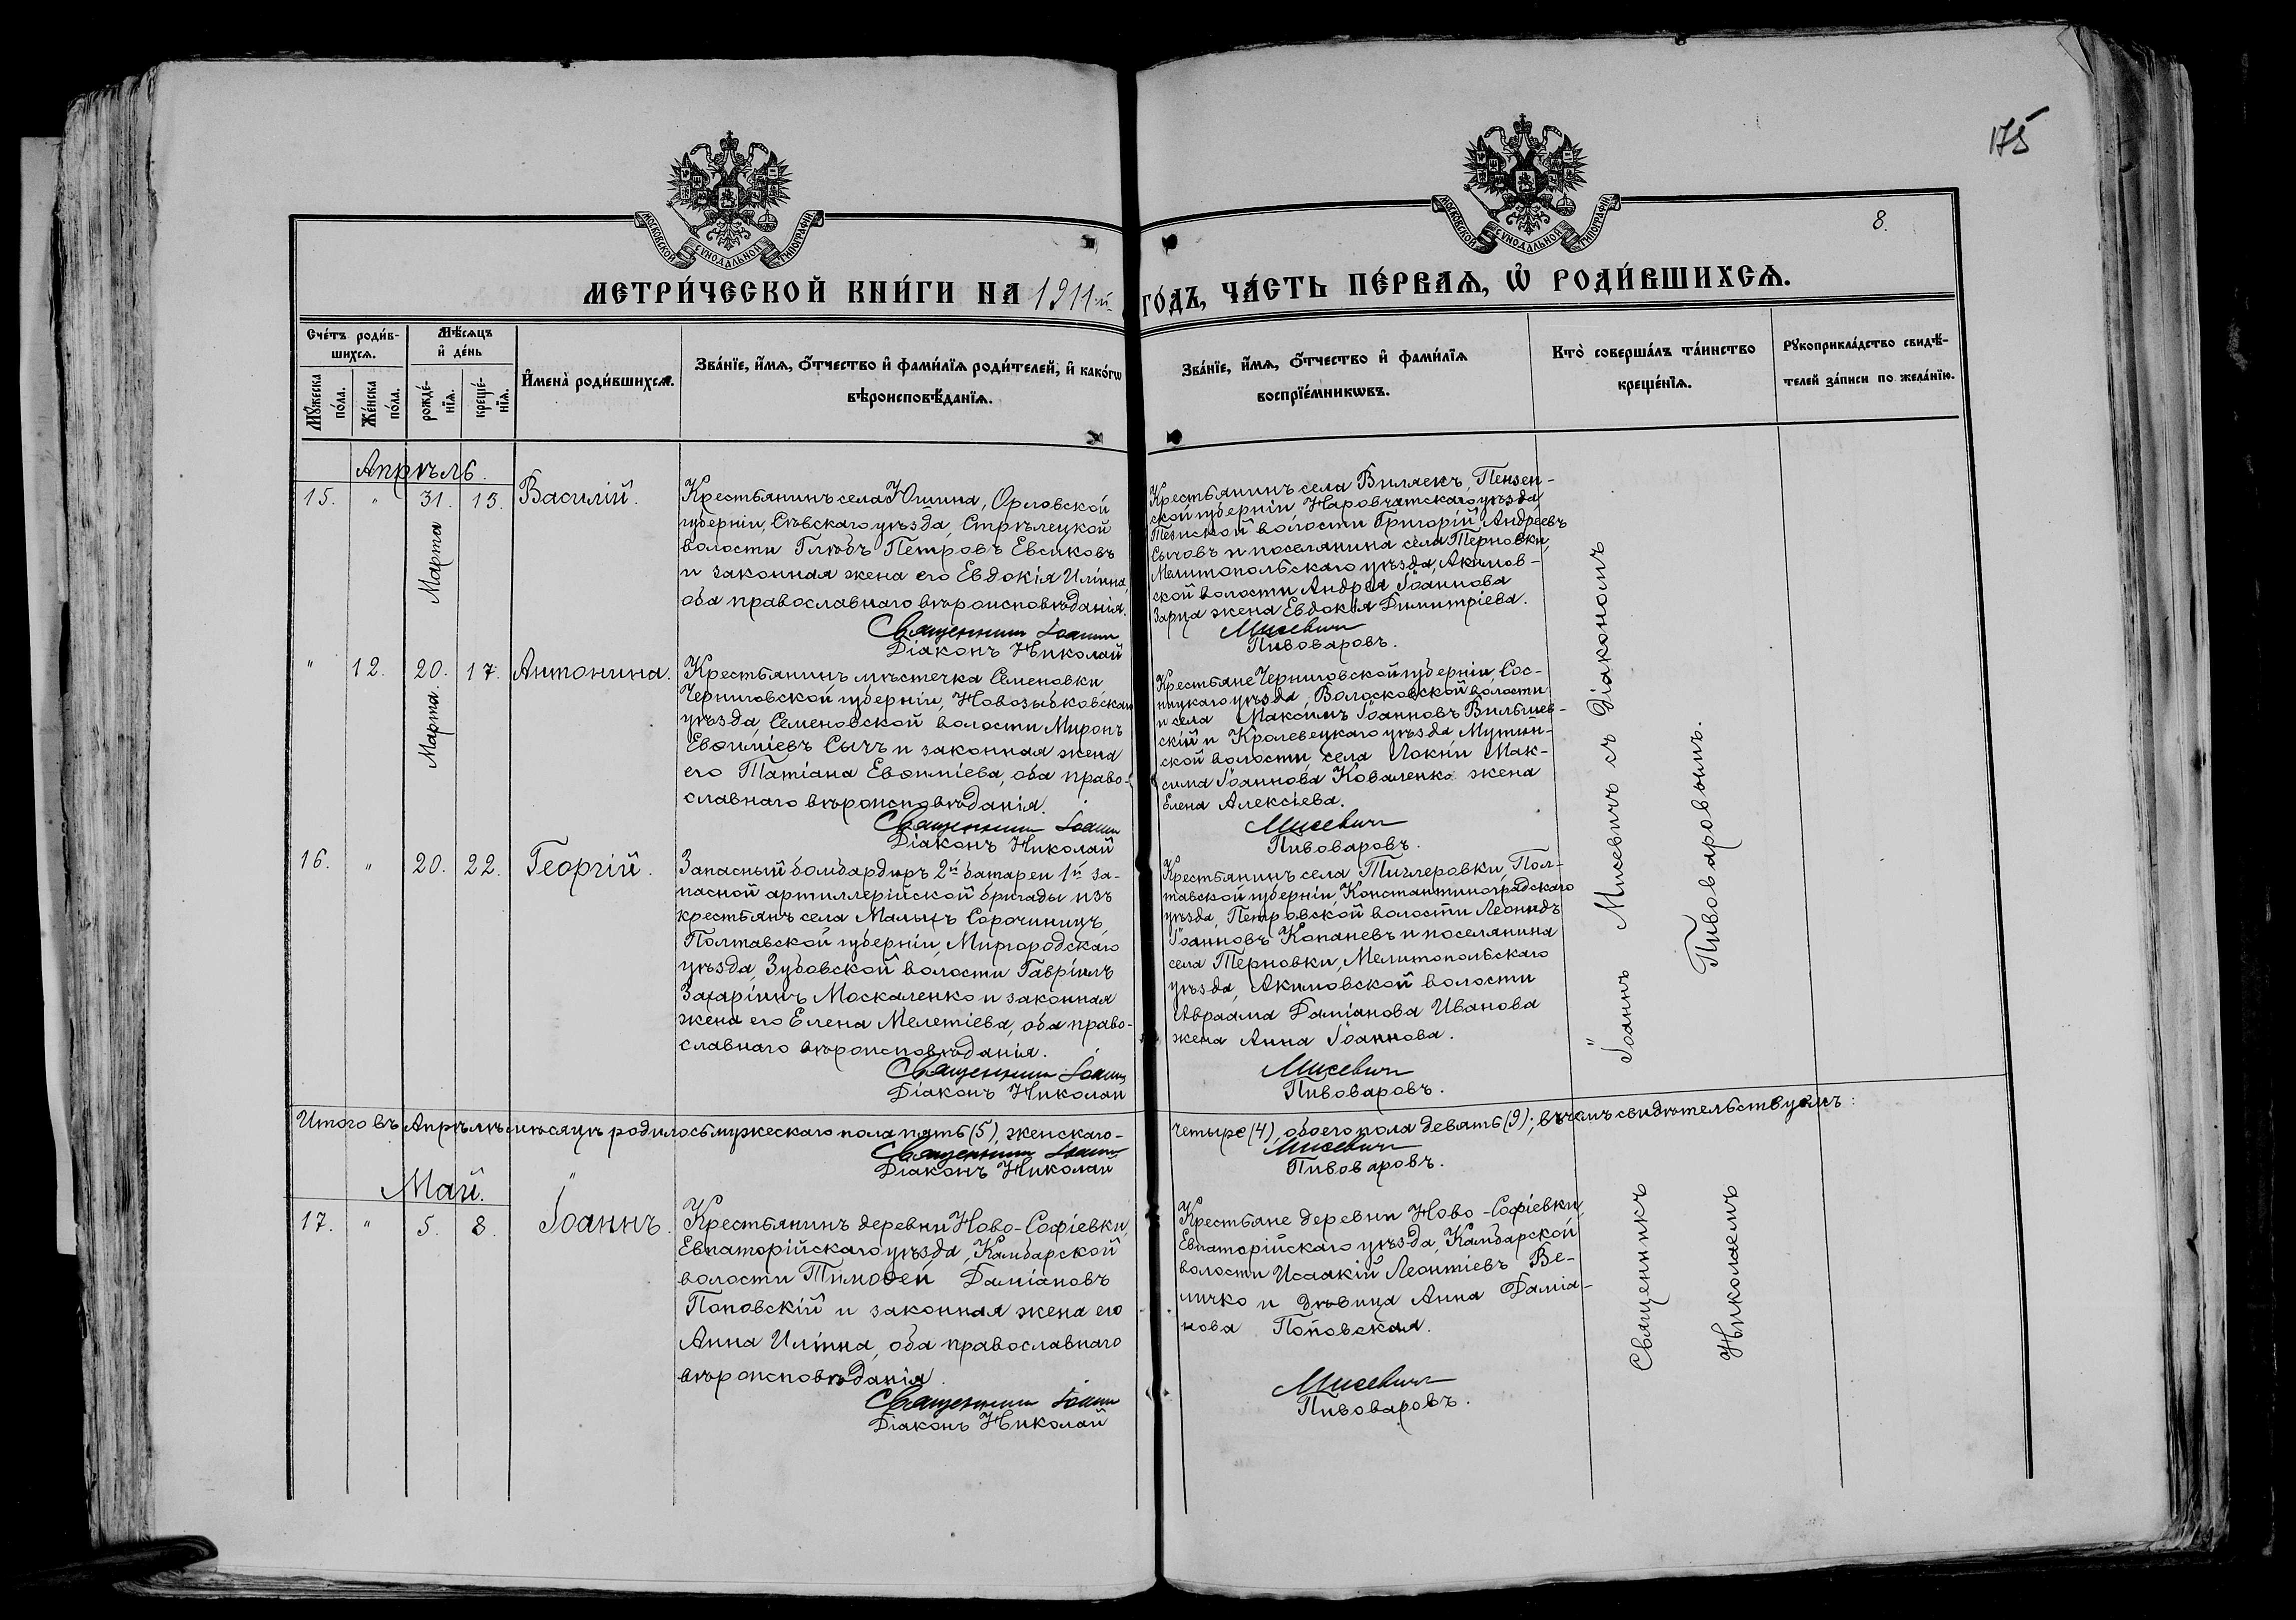 175
МОСКОВСКОЙ СѴНОДАЛЬНОЙ ТИПОГРАФІИ
МОСКОВСКОЙ СѴНОДАЛЬНОЙ ТИПОГРАФІИ
8.
МЕТРИ́ЧЕСКОЙ КНИ́ГИ НА 1911й ГО́ДЪ, ЧА́СТЬ ПЕ́РВАѦ, Ѡ҆ РОДИ́ВШИХСѦ.
Сче́тъ роди́в-
шихсѧ.
Мѣ́сѧцъ
и҆ де́нь
Мꙋ́жеска
по́ла.
Же́нска
по́ла.
рожде́-
нїѧ.
креще́-
нїѧ.
И҆мена̀ роди́вшихсѧ.
Зва́нїе, и҆́мѧ, ѻ҆́тчество и҆ фами́лїѧ роди́телей, и҆ како́гѡ
вѣроисповѣ́данїѧ.
Зва́нїе, и҆́мѧ, ѻ҆́тчество и҆ фами́лїѧ
воспрїе́мникѡвъ.
Кто̀ соверша́лъ та́инство
креще́нїѧ.
Рꙋкоприкла́дство свидѣ́-
телей за́писи по жела́нїю.
Апрѣль.
15. " 31. 13. Василій.
Марта
Крестьянинъ села Юшина, Орловской
губерніи, Сѣвскаго уѣзда, Стрѣлецкой
волости Глѣбъ Петровъ Евсиковъ
и законная жена его Евдокія Иліина,
оба православнаго вѣроисповѣданія.
Священникъ Іоаннъ
Діаконъ Николай
Крестьянинъ села Виляекъ, Пензен-
ской губерніи, Наровчатскаго уѣзда,
волости Григорій Андреевъ
Сычовъ и поселянина села Терновки,
Мелитопольскаго уѣзда, Акимов-
ской волости Андрея Іоаннова
Зарца жена Евдокія Димитріева.
Мисевичъ
Пивоваровъ.
" 12. 20. 17. Антонина.
Марта.
Крестьянинъ мѣстечка Семеновки
Черниговской губерніи, Новозыбковскаго
уѣзда, Семеновской волости Миронъ
Евѳиміевъ Сычъ и законная жена
его Татіана Евѳиміева, оба право-
славнаго вѣроисповѣданія.
Священникъ Іоаннъ
Діаконъ Николай
Крестьяне Черниговской губерніи, Сос-
ницкаго уѣзда, Волосковской волости
и села Максимъ Іоанновъ Вильчев-
скій и Кролевецкаго уѣзда Мутин-
ской волости, села Локни Мак-
сима Іоаннова Коваленко жена
Елена Алексіева.
Мисевичъ
Пивоваровъ.
16. " 20. 22. Георгій.
Запасный бомбардиръ 2й батареи 1й за-
пасной артиллерійской бригады изъ
крестьянъ села Малыхъ Сорочиницъ,
Полтавской губерніи, Миргородскаго
уѣзда, Зубовской волости Гавріилъ
Захаріинъ Москаленко и законная
жена его Елена Мелетіева, оба право-
славнаго вѣроисповѣданія.
Священникъ Іоаннъ
Діаконъ Николай
Крестьянинъ села Тишлеровки, Пол-
тавской губерніи, Константиноградскаго
уѣзда, Петровской волости Леонидъ
Іоанновъ Копаневъ и поселянина
села Терновки, Мелитопольскаго
уѣзда, Акимовской волости
Авраама Даміанова Иванова
жена Анна Іоаннова.
Мисевичъ
Пивоваровъ.
Итого въ Апрѣлѣ мѣсяцѣ родилось мужескаго пола пять (5), женскаго-
четыре (4), обоего пола девять (9); въ чемъ свидѣтельствуемъ:
Священникъ Іоаннъ
Діаконъ Николай
Мисевичъ
Пивоваровъ.
Май.
17. " 5. 8. Іоаннъ.
Крестьянинъ деревни Ново-Софіевки,
Евпаторійскаго уѣзда, Камбарской
волости Тимоѳей Даміановъ
Поповскій и законная жена его
Анна Иліина, оба православнаго
вѣроисповѣданія.
Священникъ Іоаннъ
Діаконъ Николай
Крестьяне деревни Ново-Софіевки,
Евпаторійскаго уѣзда, Камбарской
волости Исаакій Леонтіевъ Ве-
личко и дѣвица Анна Даміа-
нова Поповская.
Мисевичъ
Пивоваровъ.
Священникъ Іоаннъ Мисевичъ съ Діакономъ
Николаемъ Пивоваровымъ.